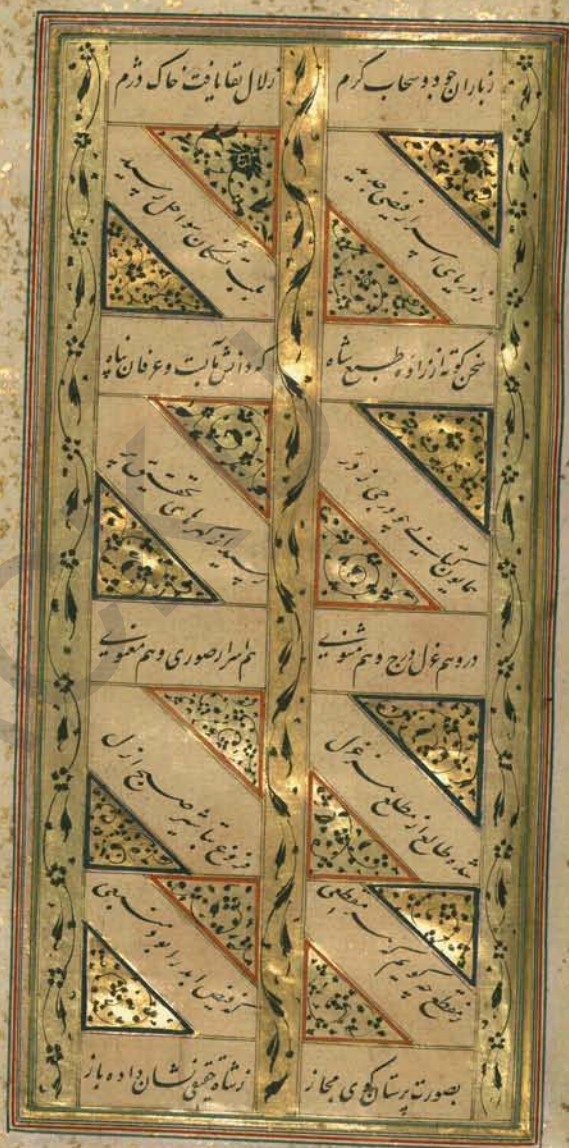 زباران جود و سحاب کرم
زلال بقا یافت خاک دژم
ز دریای اسرار فیضی جدید
بلب تشنگان سواحل رسید
سخن کوته از زاده طبع شاه
که دانش مآبست و عرفان پناه
همایون کتابی چو درجی ز در
رسید از گهرهای تحقیق پر
درو هم غزل درج و هم مثنویی
هم اسرار صوری و هم معنویی
شده طالع از مطلع هر غزل
فروغ تباشیر صبح ازل
ز مقطع چه گویم که هر مقطعی
که فیض ابد را بود منبعی
بصورت پرستان کوی مجاز
ز شاه حقیقی نشان داده باز